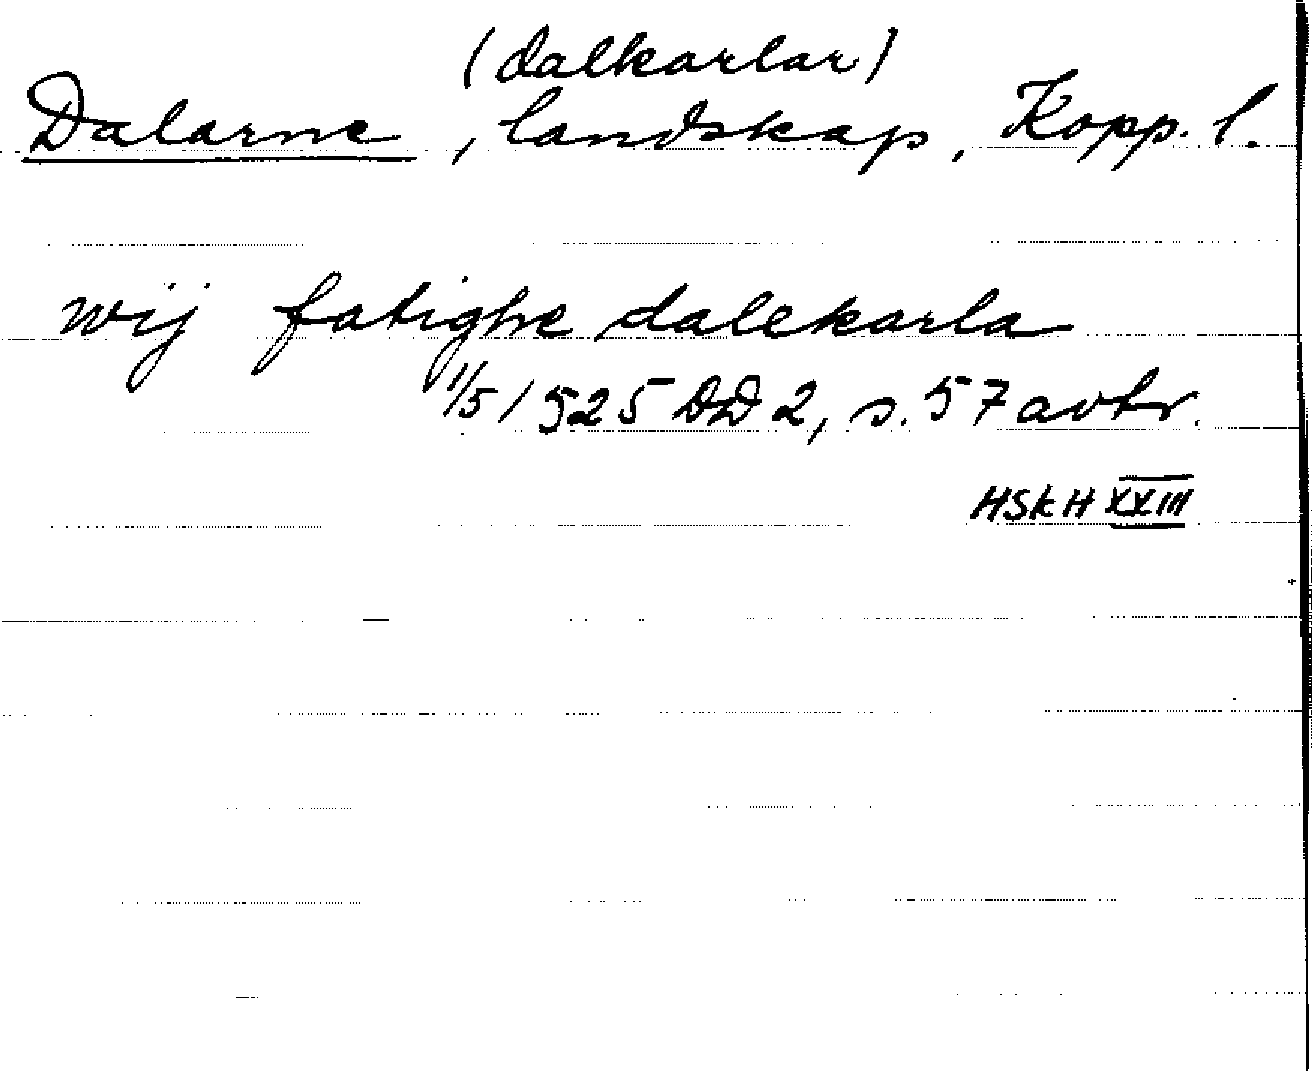 (dalkarlar)
Dalarne, landskap, Kopp. l.
wij fatighe dalekarla
1/5 1525 DD 2, s. 57 avtr.
HSkH XXIII